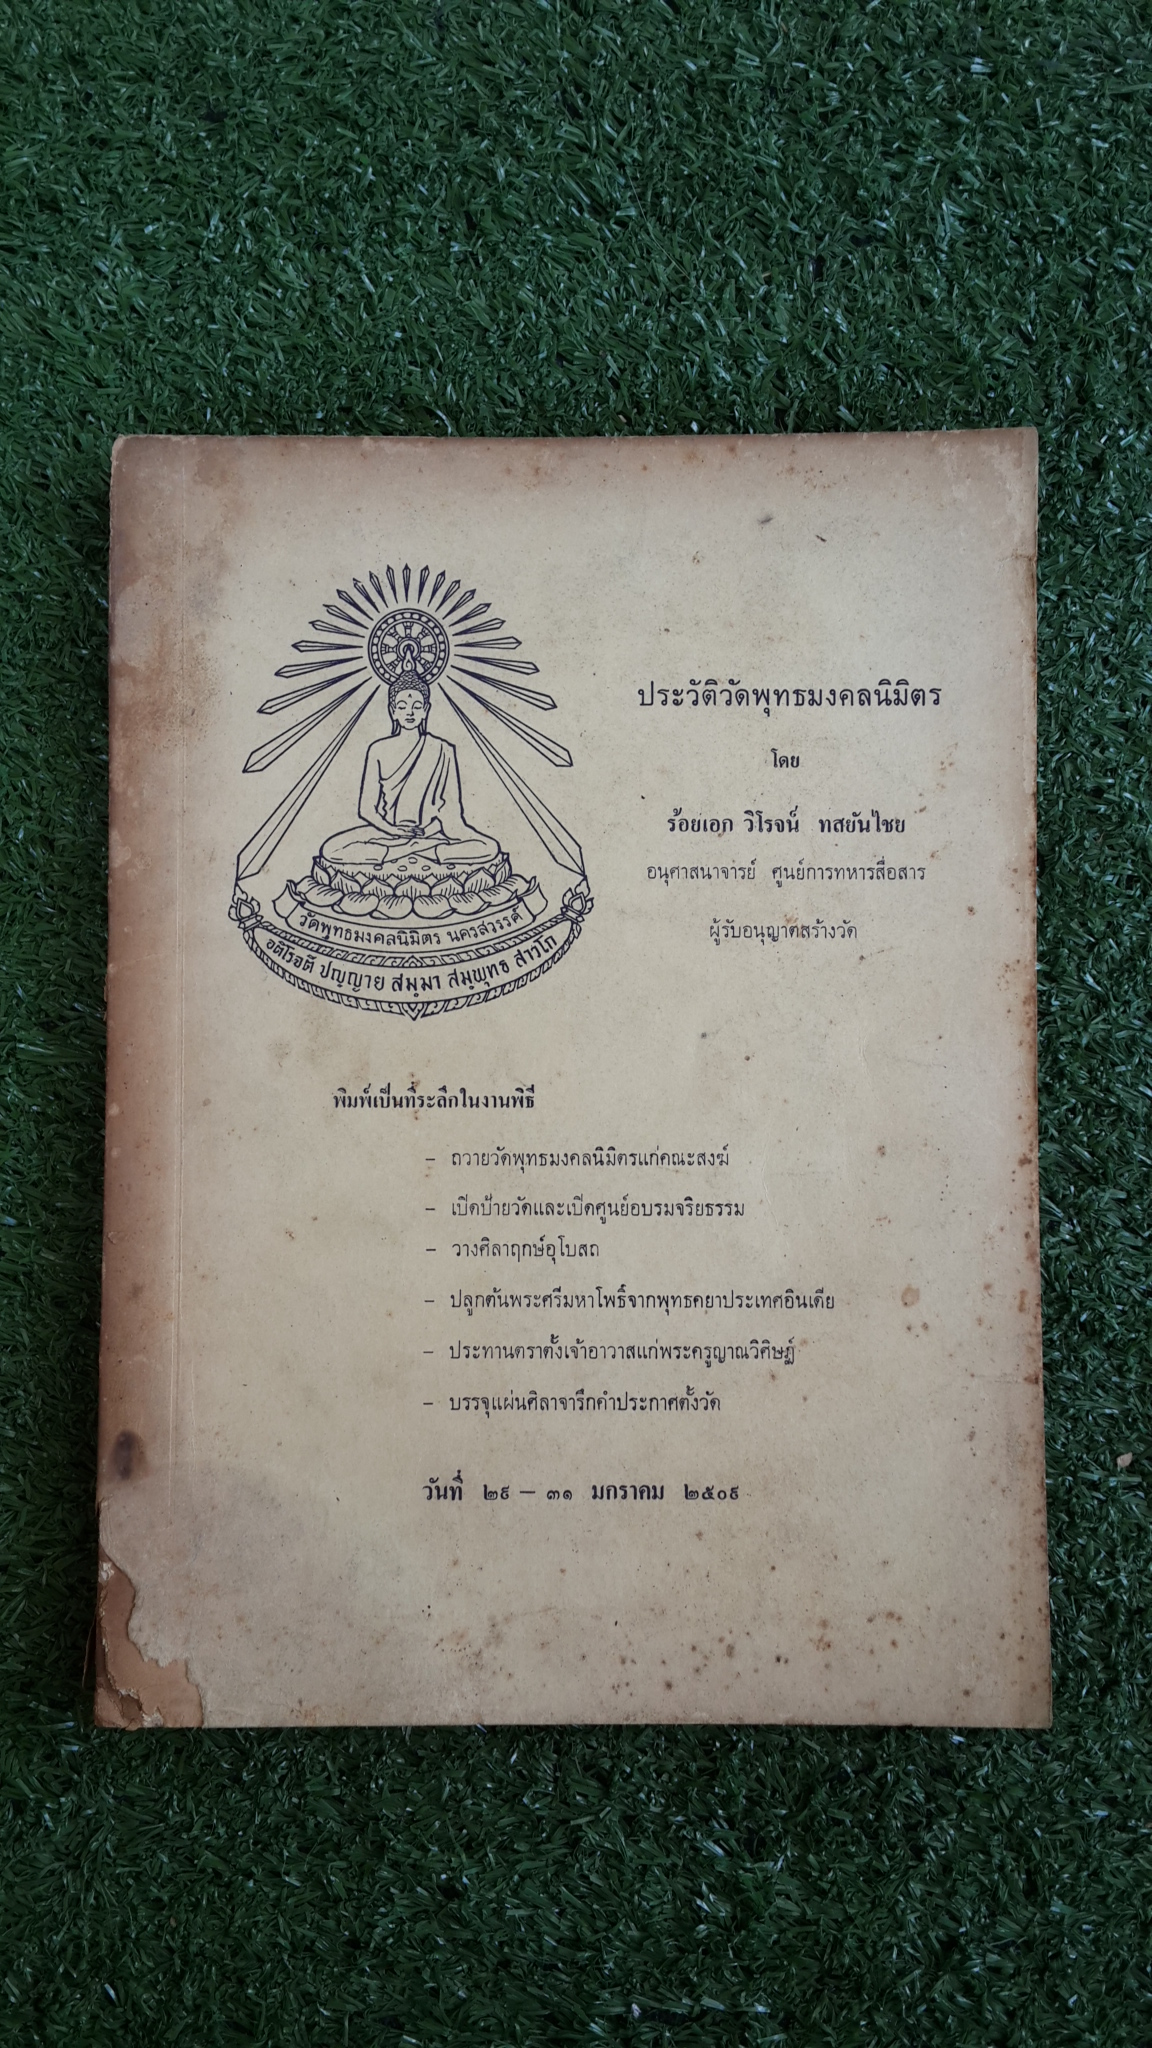 ประวัติวัดพุทธมงคลนิมิตร
โดย
ร้อยเอก วิโรจน์ ทสยันไชย
อนุศาสนาจารย์ ศูนย์การทหารสื่อสาร
ผู้รับอนุญาตสร้างวัด
วัดพุทธมงคลนิมิตร นครสวรรค์
อติโรจติ ปญฺญาย สมฺมา สมฺพุทธ สาวโก
พิมพ์เป็นที่ระลึกในงานพิธี
– ถวายวัดพุทธมงคลนิมิตรแก่คณะสงฆ์
– เปิดป้ายวัดและเปิดศูนย์อบรมจริยธรรม
– วางศิลาฤกษ์อุโบสถ
– ปลูกต้นพระศรีมหาโพธิ์จากพุทธคยาประเทศอินเดีย
– ประทานตราตั้งเจ้าอาวาสแก่พระครูญาณวิศิษฏ์
– บรรจุแผ่นศิลาจารึกคำประกาศตั้งวัด
วันที่ ๒๙ – ๓๑ มกราคม ๒๕๐๙